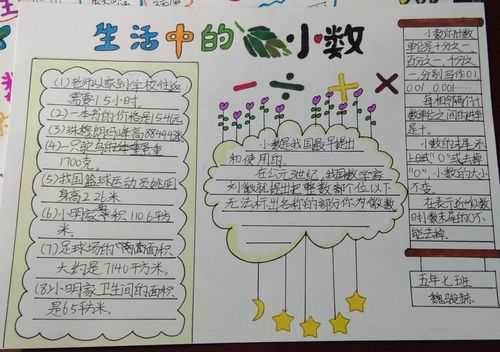 生活中的小数
(1)老师从家到学校往返
需要1.5小时。
(2)一本书的价格是15.4元。
(3)珠穆朗玛峰高8844.4米。
(4)一只鸵鸟的体重
1700克。
(5)我国篮球运动员姚明
身高2.26米
(6)小明家面积110.6平方
米。
(7)足球场的面积
大约是7140平方米。
(8)小明家卫生间的面积
是6.5平方米。
- ÷ + ×
小数是我国最早提出
和使用的。
在公元3世纪,我国数学家
刘徽就提出把整数部个位以下
无法标出名称的部分称为微数
小数的计数
单位是十分之一
百分之一、十分之
一分别写作0.1
0.01 0.001……
每相邻两个计
数单位之间的进率
是十。
小数的末尾添
上或"0"或去掉
"0",小数的大小
不变。
在表示近似数
时小数末尾的0不
能去掉。
五年七班